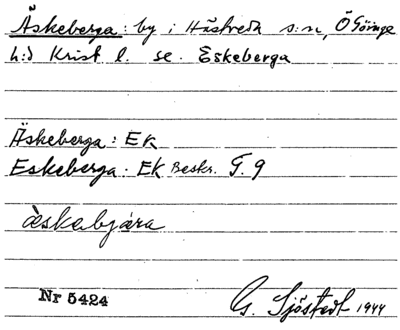 Äskeberga: by i Hästveda s:n, Ö Göinge
h:d Krist l. se. Eskeberga
Äskeberga: EK
Eskeberga: EK Beskr. F. 9
æ̀skabjæra
Nr 5424
G. Sjöstedt 1944